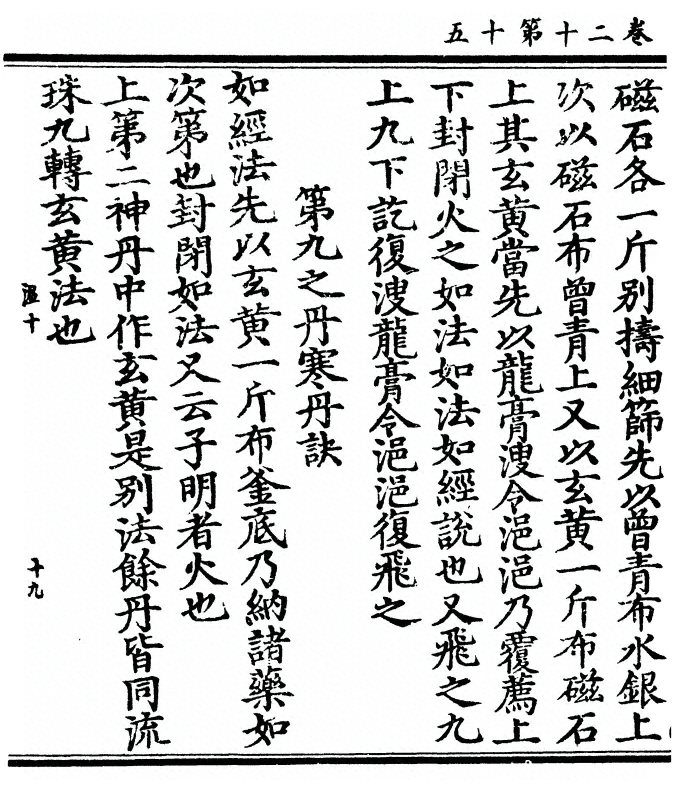 卷二十第十五
磁石各一斤別擣細篩先以曾青布水銀上
次以磁石布曾青上又以玄黃一斤布磁石
上其玄黃當先以龍膏溲令浥浥乃覆薦上
下封閉火之如法如法如經說也又飛之九
上九下訖復溲龍膏令浥浥復飛之
第九之丹寒丹訣
如經法先以玄黃一斤布釜底乃納諸藥如
次第也封閉如法又云子明者火也
上第二神丹中作玄黃是別法餘丹皆同流
珠九轉玄黃法也
溫十
十九